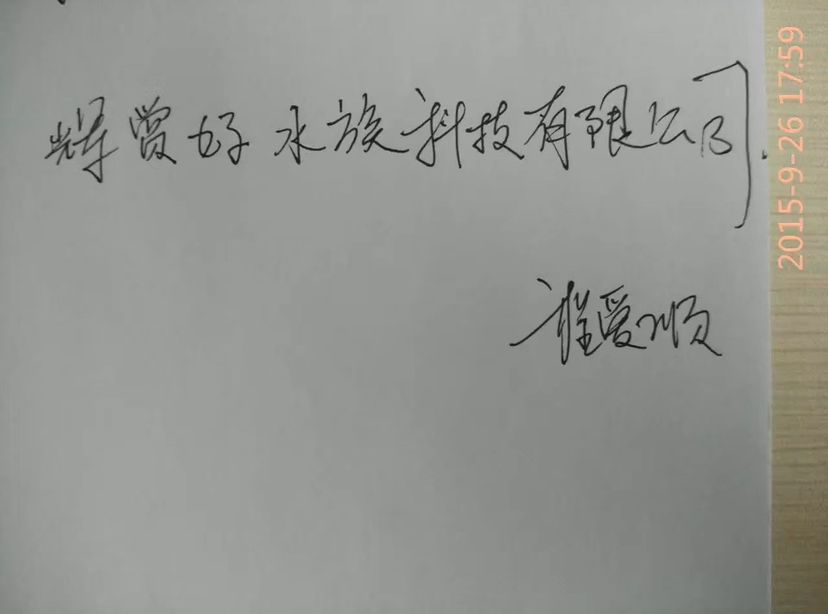 辉曾好水族科技有限公司.
程爱顺
2015-9-26 17:59